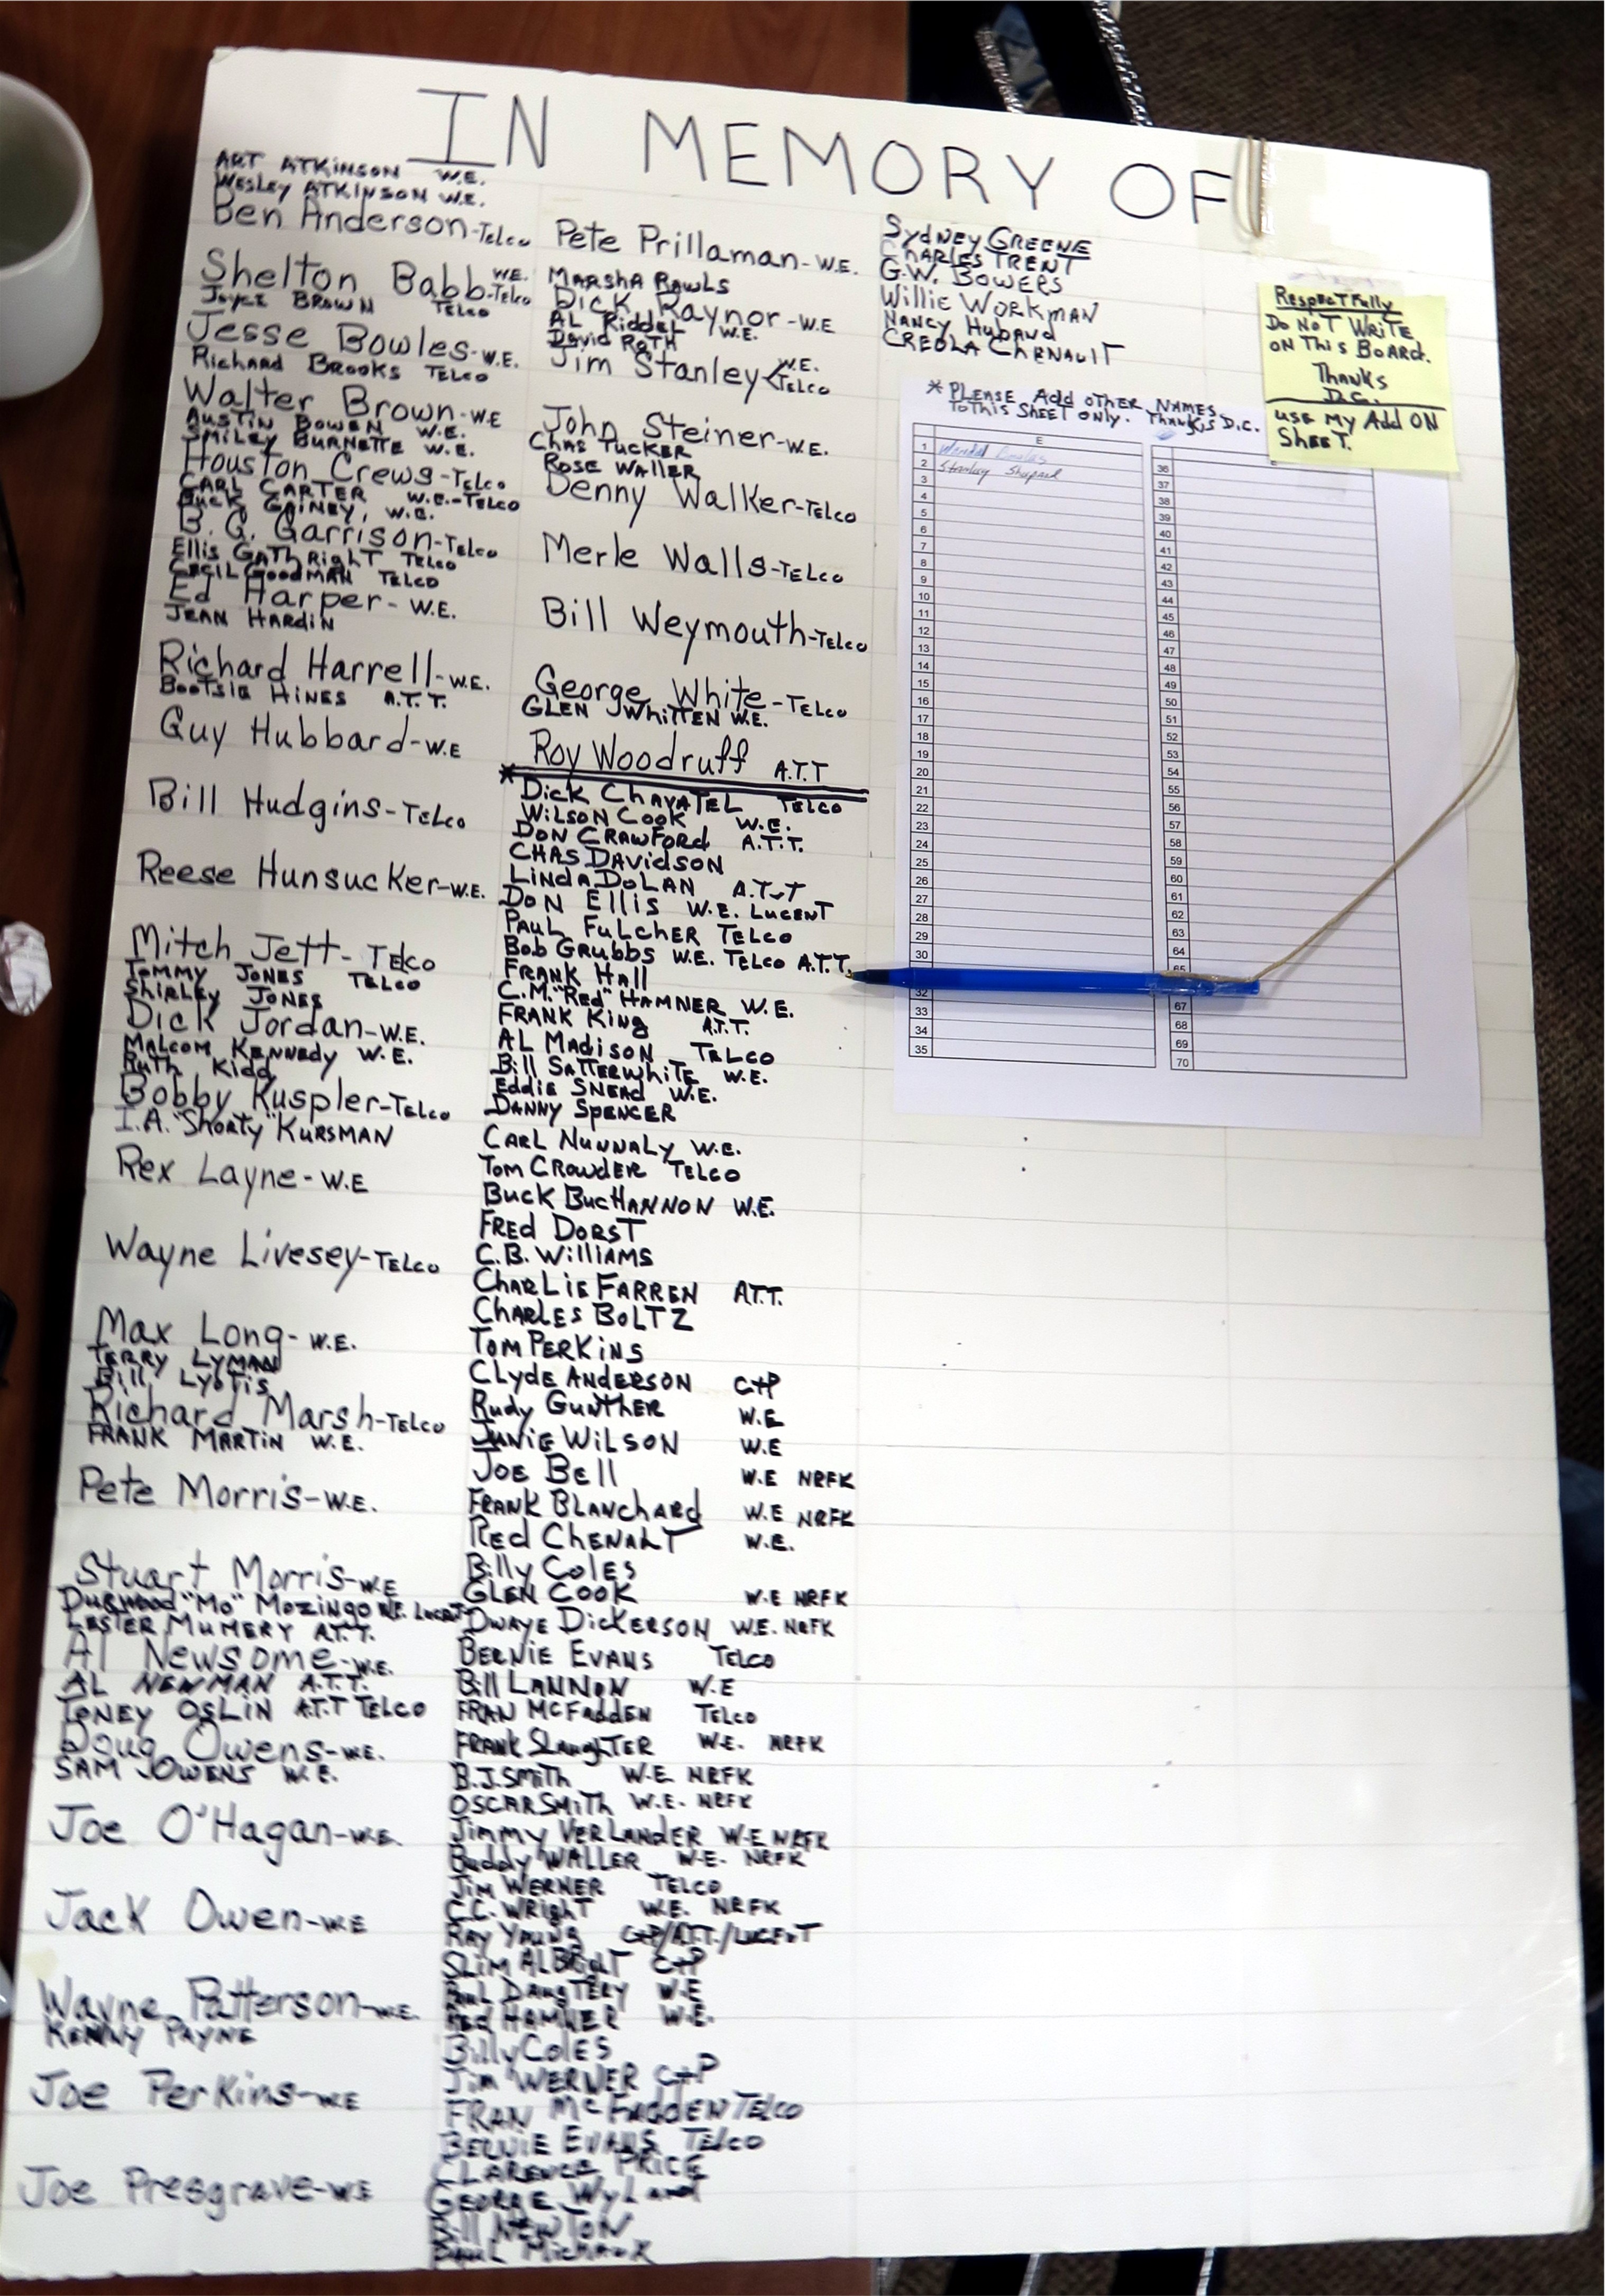 IN MEMORY OF
ART ATKINSON W.E.
WESLEY ATKINSON W.E.
Ben Anderson-Telco
Shelton Babb W.E.-Telco
JOYCE BROWN TELCO
Jesse Bowles-W.E.
RICHARD BROOKS TELCO
Walter Brown-W.E
AUSTIN BOWEN W.E.
SMILEY BURNETTE W.E.
Houston Crews-Telco
CARL CARTER W.E.-TELCO
BUCK GAINEY, W.E.
B. G. Garrison-Telco
Ellis GATHRIGHT TELCO
CECIL GOODMAN TELCO
Ed Harper-W.E.
JEAN HARDIN
Richard Harrell-W.E.
BOOTSIE HINES A.T.T.
Guy Hubbard-W.E
Bill Hudgins-Telco
Reese Hunsucker-W.E.
Mitch Jett-Telco
TOMMY JONES TELCO
SHIRLEY JONES
Dick Jordan-W.E.
MALCOM KENNEDY W.E.
RUTH KIDD
Bobby Kuspler-Telco
I.A. "SHORTY" KURSMAN
Rex Layne-W.E
Wayne Livesey-TELCO
Max Long-W.E.
TERRY LYMAN
Bill
Richard Marsh-TELCO
FRANK MARTIN W.E.
Pete Morris-W.E.
Stuart Morris-W.E
DURWOOD "MO" MOZINGO W.E.
LESTER MUMERY A.T.T.
Al Newsome-W.E.
AL NEWMAN A.T.T.
TONEY OSLIN A.T.T TELCO
Doug Owens-W.E.
SAM OWENS W.E.
Joe O'Hagan-W.E.
Jack Owen-W.E
Wayne Patterson-W.E.
KENNY PAYNE
Joe Perkins-W.E
Joe Presgrave-W.E
Pete Prillaman-W.E.
MARSHA RAWLS
Dick Raynor-W.E
AL RIDDEL W.E.
David ROTH
Jim Stanley W.E. TELCO
John Steiner-W.E.
CHAS TUCKER
ROSE WALLER
Denny Walker-TELCO
Merle Walls-TELCO
Bill Weymouth-TELCO
George White-TELCO
GLEN WHITTEN W.E.
Roy Woodruff A.T.T
* DICK CHAVATEL TELCO
WILSON COOK W.E.
DON CRAWFORD A.T.T.
CHAS DAVIDSON
LINDA DOLAN A.T.T
DON ELLIS W.E. LUCENT
PAUL FULCHER TELCO
BOB GRUBBS W.E. TELCO A.T.T.
FRANK HALL
C.M. "Red" HAMNER W.E.
FRANK KING A.T.T.
AL MADISON TELCO
Bill SATTERWHITE W.E.
EDDIE SNEAD W.E.
DANNY SPENCER
CARL NUNNALY W.E.
TOM CROWDER TELCO
BUCK BUCHANNON W.E.
FRED DORST
C.B. WILLIAMS
CHARLIE FARREN A.T.T.
CHARLES BOLTZ
TOM PERKINS
CLYDE ANDERSON C+P
RUDY GUNTHER W.E
JUNIE WILSON W.E
JOE BELL W.E NRFK
FRANK BLANCHARD W.E NRFK
RED CHENALT W.E.
Billy COLES
GLEN COOK W.E NRFK
DWAYE DICKERSON W.E. NRFK
BERNIE EVANS TELCO
Bill LANNON W.E
FRAN MCFADDEN TELCO
FRANK SLAUGHTER W.E. NRFK
B.J. SMITH W.E. NRFK
OSCAR SMITH W.E. NRFK
JIMMY VERLANDER W.E NRFK
BUDDY WALLER W.E. NRFK
JIM WERNER TELCO
C.C. WRIGHT W.E. NRFK
RAY YOUNG C+P/A.T.T./LUCENT
SLIM ALBRIGHT C+P
PAUL DAUGTERY W.E
RED HAMNER W.E.
Billy COLES
JIM WERNER C+P
FRAN MCFADDEN TELCO
BERNIE EVANS TELCO
CLARENCE PRICE
GEORGE WYLAND
Bill NEWTON
PAUL MICHAUX
SYDNEY GREENE
CHARLES TRENT
G.W. BOWERS
Willie WORKMAN
NANCY HUBAND
CREOLA CHENAULT
* PLEASE Add OTHER NAMES
TO THIS SHEET ONLY. THANKS D.C.
RESPECTFULLY
DO NOT WRITE
ON THIS BOARD.
THANKS
D.C.
USE MY Add ON
SHEET.
E
1
2 Stanley Shepard
3
4
5
6
7
8
9
10
11
12
13
14
15
16
17
18
19
20
21
22
23
24
25
26
27
28
29
30
32
33
34
35
36
37
38
39
40
41
42
43
44
45
46
47
48
49
50
51
52
53
54
55
56
57
58
59
60
61
62
63
64
65
67
68
69
70